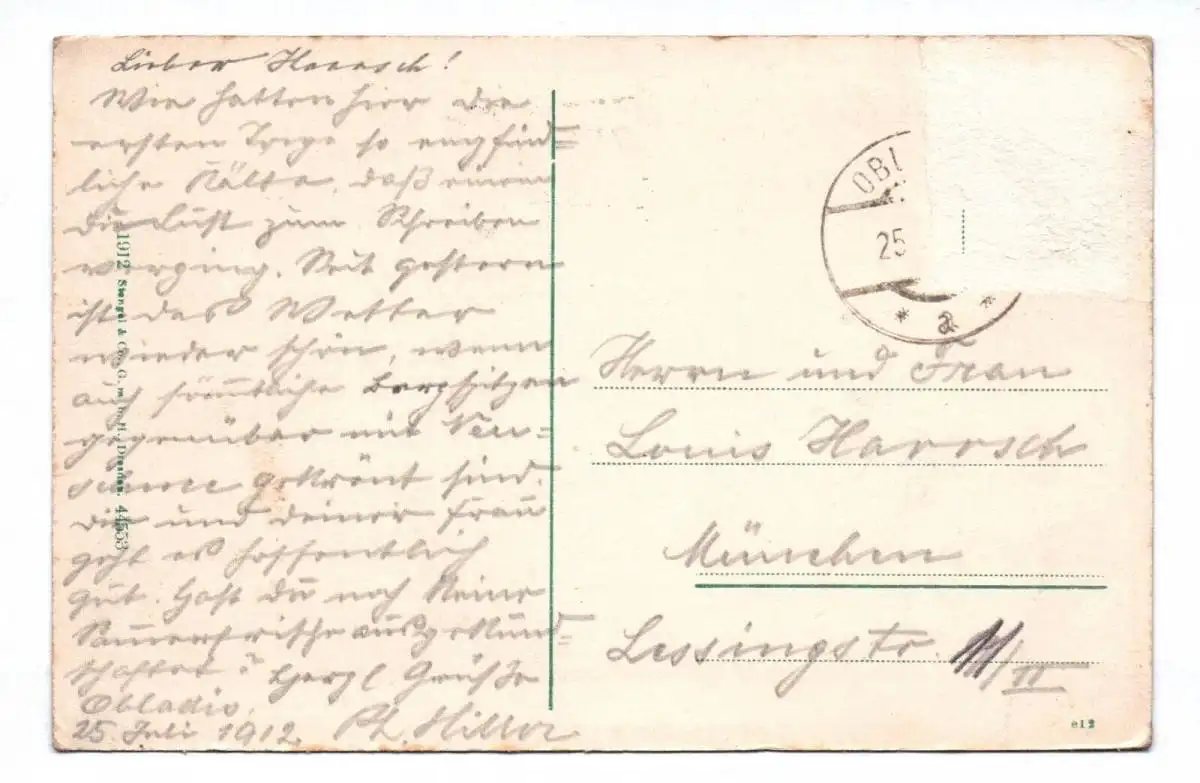 Lieber Harrsch!
Wir hatten hier die
ersten Tage so empfind=
liche Kälte, daß einem
die Lust zum Schreiben
verging. Seit gestern
ist das Wetter
wieder schön, wenn
auch sämtliche Bergspitzen
gegenüber mit Neu-
schnee gekrönt sind.
Dir und deiner Frau
geht es hoffentlich
gut. Hast Du noch keine
Sommerfrische ausgekund=
schaftet? Herzl Grüße
Obladis,
25 Juli 1912. Hiller
1912 Stengel & Co., G. m. b. H., Dresden. 44553
OBL
25
* a *
Herrn und Frau
Louis Harrsch
München
Lessingstr. 11/II
e12